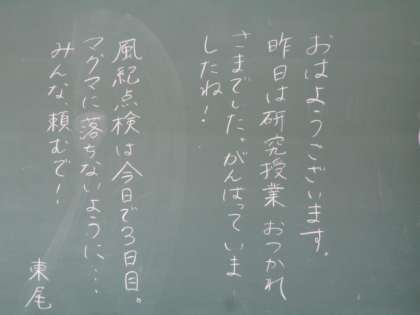 おはようございます。
昨日は研究授業 おつかれ
さまでした。がんばっていま
したね!
風紀点検は今日で3日目。
マグマに落ちないように…
みんな、頼むで!
東尾